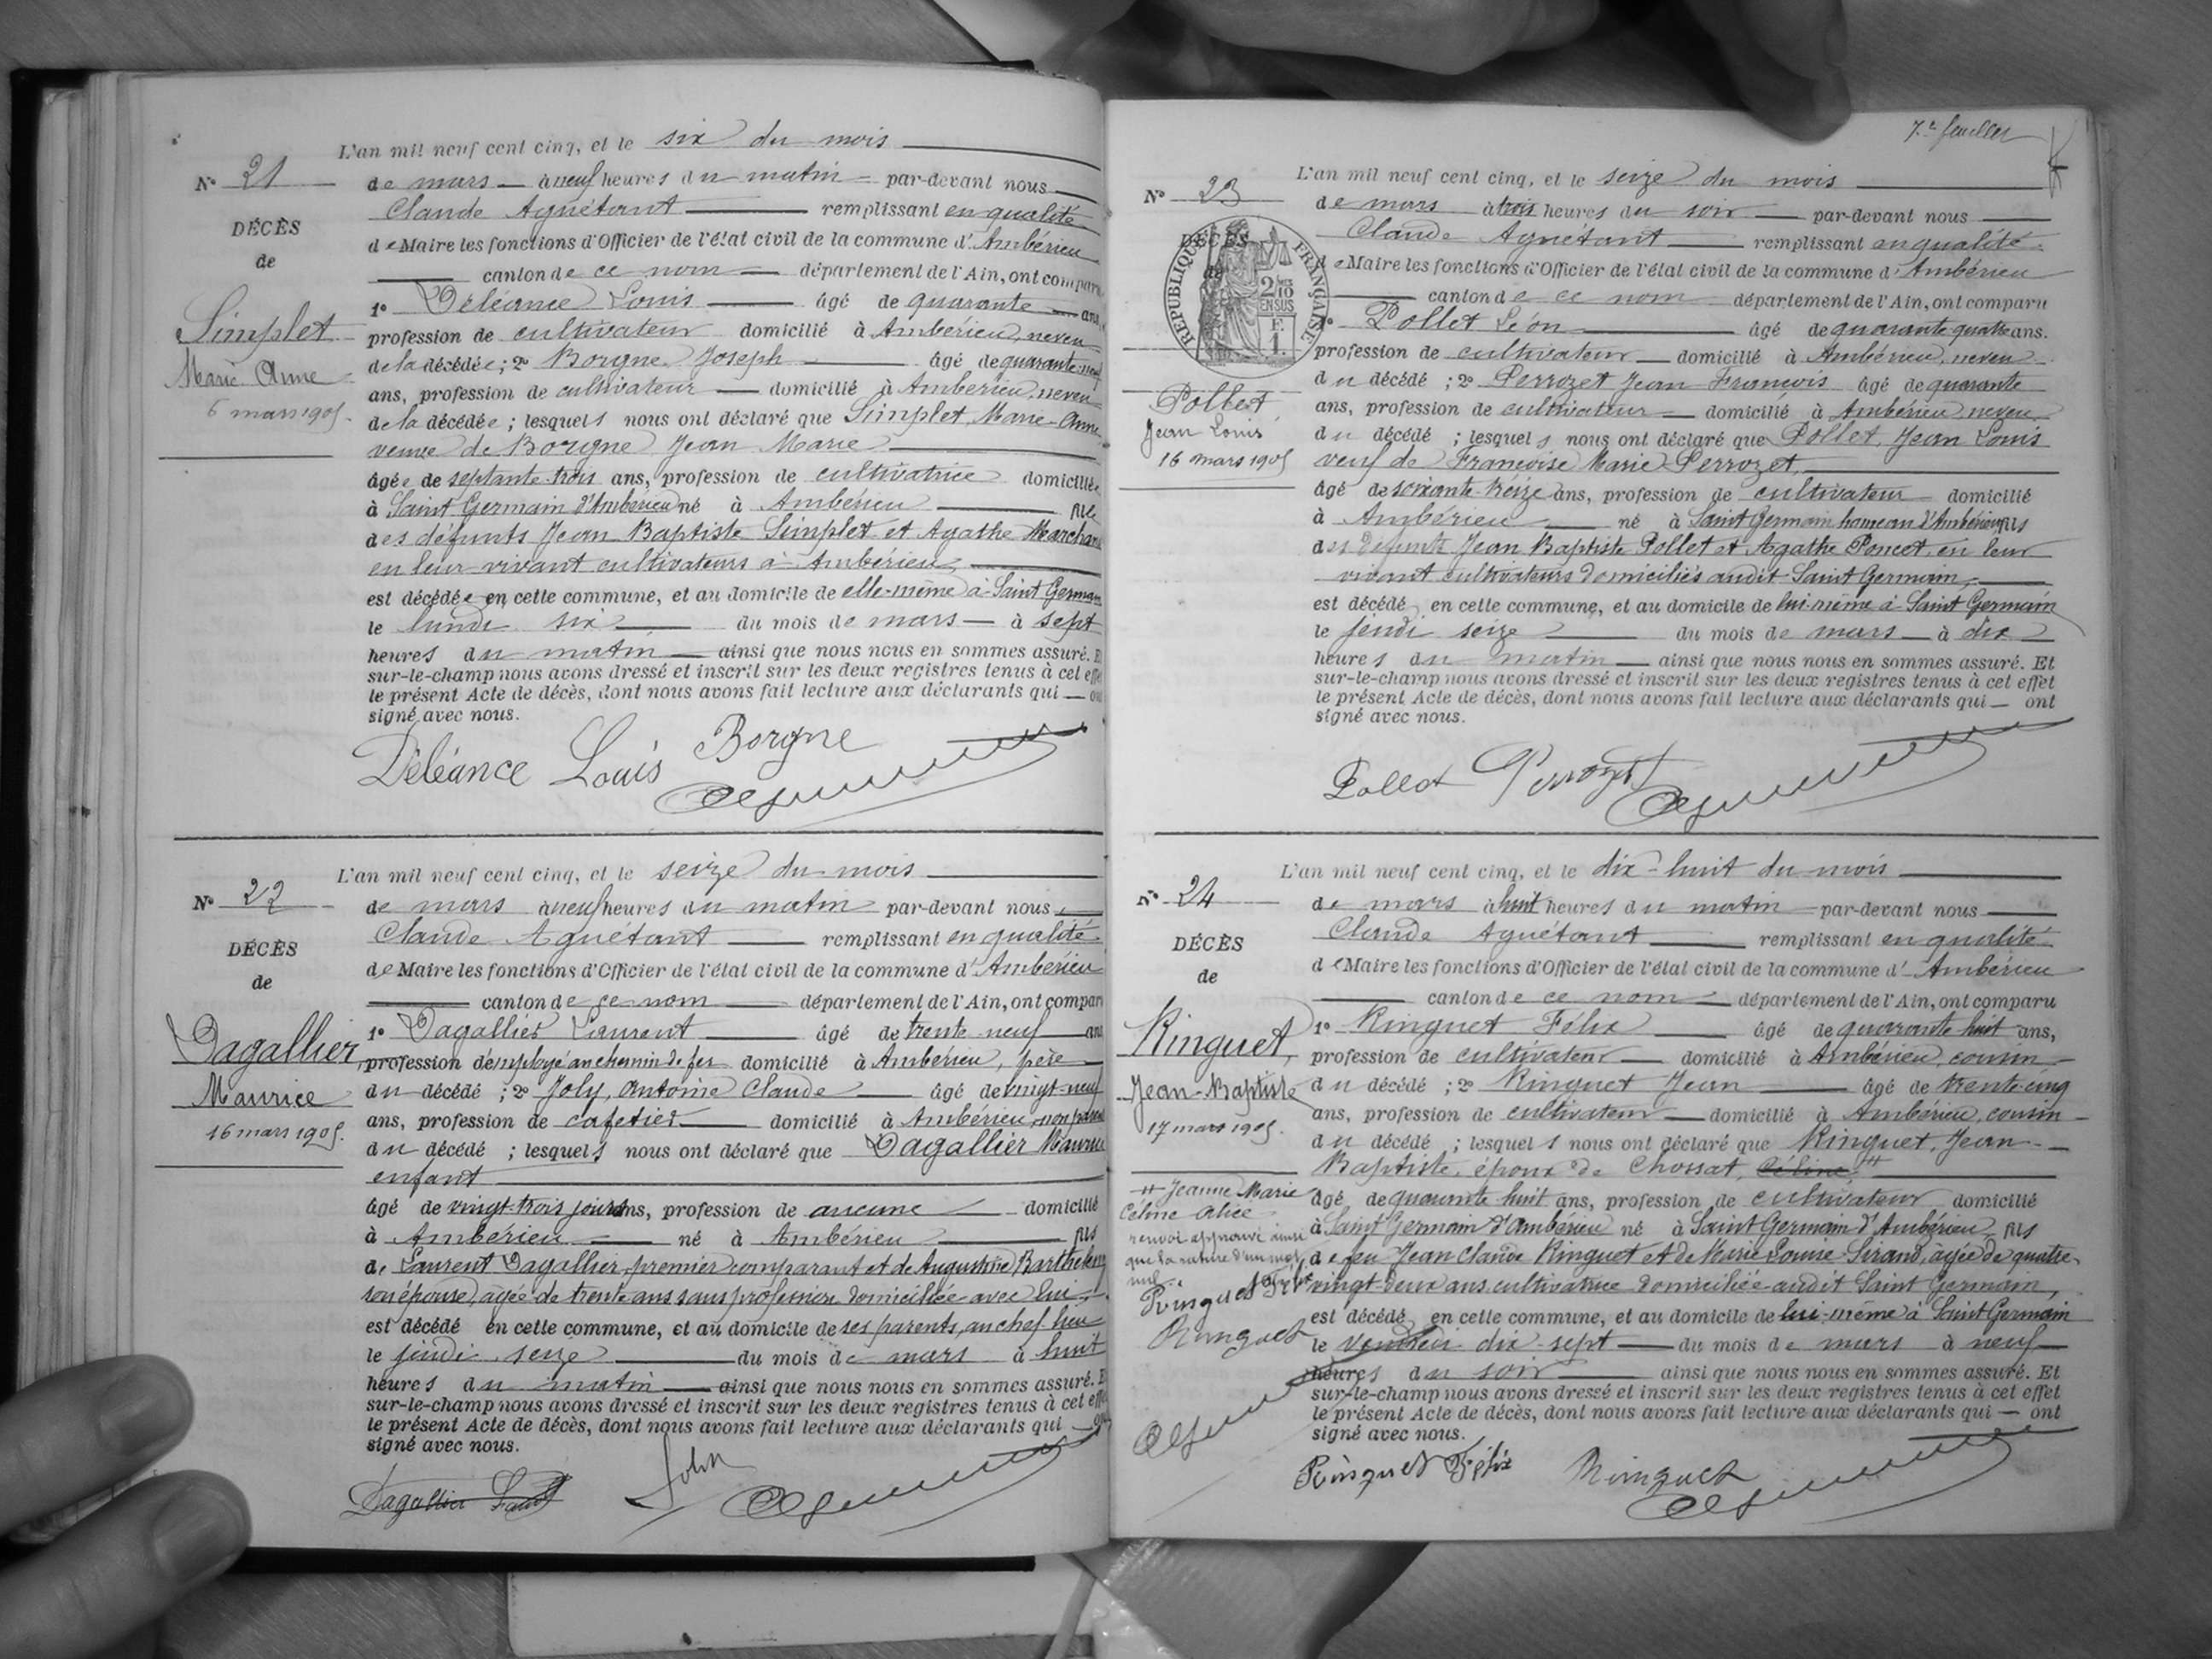 L'an mil neuf cent cinq, et le six du mois
N° 21
de mars à neuf heures du matin par-devant nous
Claude Aguétant remplissant en qualité
DÉCÈS
de Maire les fonctions d'Officier de l'état civil de la commune d'Ambérieu
de
canton de ce nom département de l'Ain, ont comparu
1° Déléance Louis âgé de quarante ans,
Simplet
profession de cultivateur domicilié à Ambérieu, neveu
Marie Anne
de la décédée ; 2° Borgne Joseph âgé de quarante neuf
6 mars 1905.
ans, profession de cultivateur domicilié à Ambérieu, neveu
de la décédée ; lesquels nous ont déclaré que Simplet, Marie-Anne
veuve de Borgne Jean Marie
âgée de septante-trois ans, profession de cultivatrice domiciliée
à Saint Germain d'Ambérieu né à Ambérieu fille
des défunts Jean Baptiste Simplet et Agathe Marchand
en leur vivant cultivateurs à Ambérieu,
est décédée en cette commune, et au domicile de elle-même à Saint Germain
le lundi six du mois de mars à sept
heures du matin ainsi que nous nous en sommes assuré. Et
sur-le-champ nous avons dressé et inscrit sur les deux registres tenus à cet effet
le présent Acte de décès, dont nous avons fait lecture aux déclarants qui ont
signé avec nous.
Déléance Louis Borgne
L'an mil neuf cent cinq, et le seize du mois
N° 22
de mars à neuf heures du matin par-devant nous
Claude Aguétant remplissant en qualité
DÉCÈS
de Maire les fonctions d'Officier de l'état civil de la commune d'Ambérieu
de
canton de ce nom département de l'Ain, ont comparu
1° Dagallier Laurent âgé de trente-neuf ans
Dagallier,
profession d'employé au chemin de fer domicilié à Ambérieu, père
Maurice
du décédé ; 2° Joly, Antoine Claude âgé de vingt-neuf
16 mars 1905.
ans, profession de cafetier domicilié à Ambérieu, non parent
du décédé ; lesquels nous ont déclaré que Dagallier Maurice
enfant
âgé de vingt-trois jours ans, profession de aucune domicilié
à Ambérieu né à Ambérieu fils
de Laurent Dagallier, premier comparant et de Augustine Barthelemy
son épouse, âgée de trente ans sans profession domiciliée avec lui,
est décédé en cette commune, et au domicile de ses parents, au chef lieu
le jeudi seize du mois de mars à huit
heures du matin ainsi que nous nous en sommes assuré. Et
sur-le-champ nous avons dressé et inscrit sur les deux registres tenus à cet effet
le présent Acte de décès, dont nous avons fait lecture aux déclarants qui ont
signé avec nous.
Dagallier Joly
7e feuillet
L'an mil neuf cent cinq, et le seize du mois
N° 23
de mars à trois heures du soir par-devant nous
Claude Aguétant remplissant en qualité
DÉCÈS
de
RÉPUBLIQUE FRANÇAISE
2/10 EN SUS
F. 1.
de Maire les fonctions d'Officier de l'état civil de la commune d'Ambérieu
canton de ce nom département de l'Ain, ont comparu
1° Pollet Léon âgé de quarante-quatre ans.
profession de cultivateur domicilié à Ambérieu, neveu
du décédé ; 2° Perrozet Jean François âgé de quarante
Pollet,
ans, profession de cultivateur domicilié à Ambérieu neveu
Jean Louis
du décédé ; lesquels nous ont déclaré que Pollet, Jean Louis
16 mars 1905
veuf de Françoise Marie Perrozet,
âgé de soixante-treize ans, profession de cultivateur domicilié
à Ambérieu né à Saint Germain hameau d'Ambérieu fils
des défunts Jean Baptiste Pollet et Agathe Poncet en leur
vivant cultivateurs domiciliés audit Saint Germain,
est décédé, en cette commune, et au domicile de lui-même à Saint Germain
le jeudi seize du mois de mars à dix
heures du matin ainsi que nous nous en sommes assuré. Et
sur-le-champ nous avons dressé et inscrit sur les deux registres tenus à cet effet
le présent Acte de décès, dont nous avons fait lecture aux déclarants qui ont
signé avec nous.
Pollet Perrozet
L'an mil neuf cent cinq, et le dix-huit du mois
N° 24
de mars à huit heures du matin par-devant nous
Claude Aguétant remplissant en qualité
DÉCÈS
de Maire les fonctions d'Officier de l'état civil de la commune d'Ambérieu
de
canton de ce nom département de l'Ain, ont comparu
1° Ringuet Félix âgé de quarante huit ans,
Ringuet,
profession de cultivateur domicilié à Ambérieu, cousin
Jean-Baptiste
du décédé ; 2° Ringuet Jean âgé de trente-cinq
17 mars 1905.
ans, profession de cultivateur domicilié à Ambérieu, cousin
du décédé ; lesquels nous ont déclaré que Ringuet, Jean-
Baptiste, époux de Chossat, Céline #
# Jeanne Marie
Céline Alice
renvoi approuvé ainsi
que la rature d'un mot
nul.
Ringuet Félix
Ringuet
âgé de quarante huit ans, profession de cultivateur domicilié
à Saint Germain d'Ambérieu né à Saint Germain d'Ambérieu, fils
de feu Jean Claude Ringuet et de Marie Louise Sirand, âgée de quatre-
vingt-deux ans cultivatrice domiciliée audit Saint Germain,
est décédé, en cette commune, et au domicile de lui-même à Saint Germain
le vendredi dix-sept du mois de mars à neuf
heures du soir ainsi que nous nous en sommes assuré. Et
sur-le-champ nous avons dressé et inscrit sur les deux registres tenus à cet effet
le présent Acte de décès, dont nous avons fait lecture aux déclarants qui ont
signé avec nous.
Ringuet Félix Ringuet